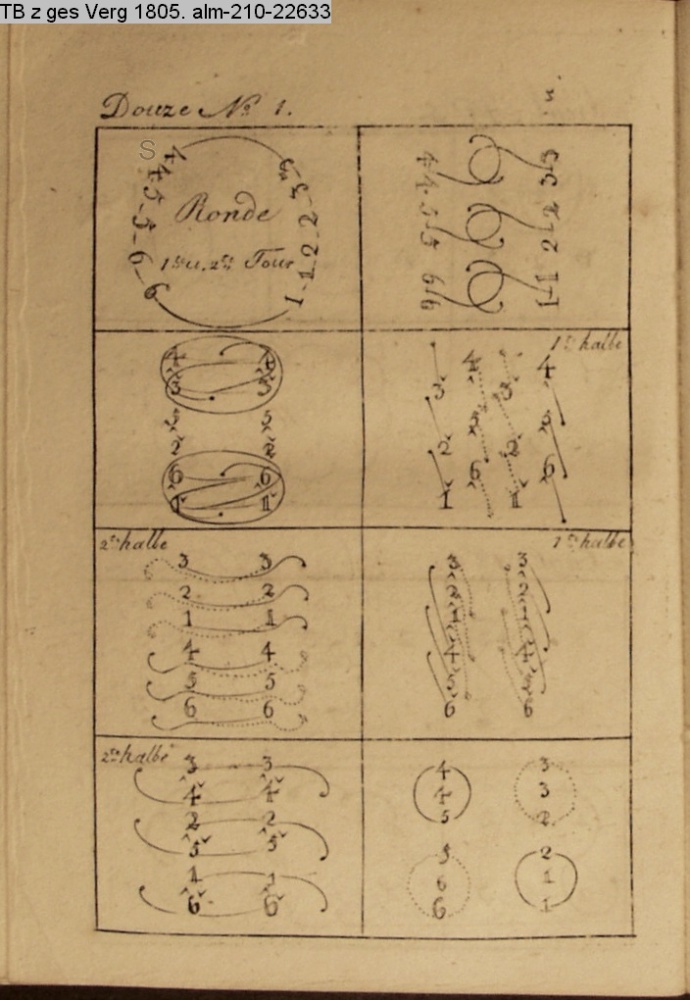 TB z ges Verg 1805. alm-210-22633
Douze No 1.
S
4 4 5 5 6 6
3 3 2 2 1 1
Ronde
1te u. 2te Tour
4 4 5 5 6 6
3 3 2 2 1 1
4 4
3 3
5 5
2 2
6 6
1 1
1te halbe
4 4
3 3
5 5
2 2
6 6
1 1
2te halbe
3 3
2 2
1 1
4 4
5 5
6 6
1te halbe
3 3
2 2
1 1
4 4
5 5
6 6
2te halbe
3 3
4 4
2 2
5 5
1 1
6 6
4 3
4 3
5 2
5 2
6 1
6 1